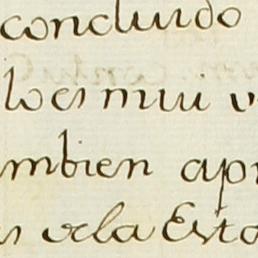 concluido
loes mui
mbien apr
de la Esta